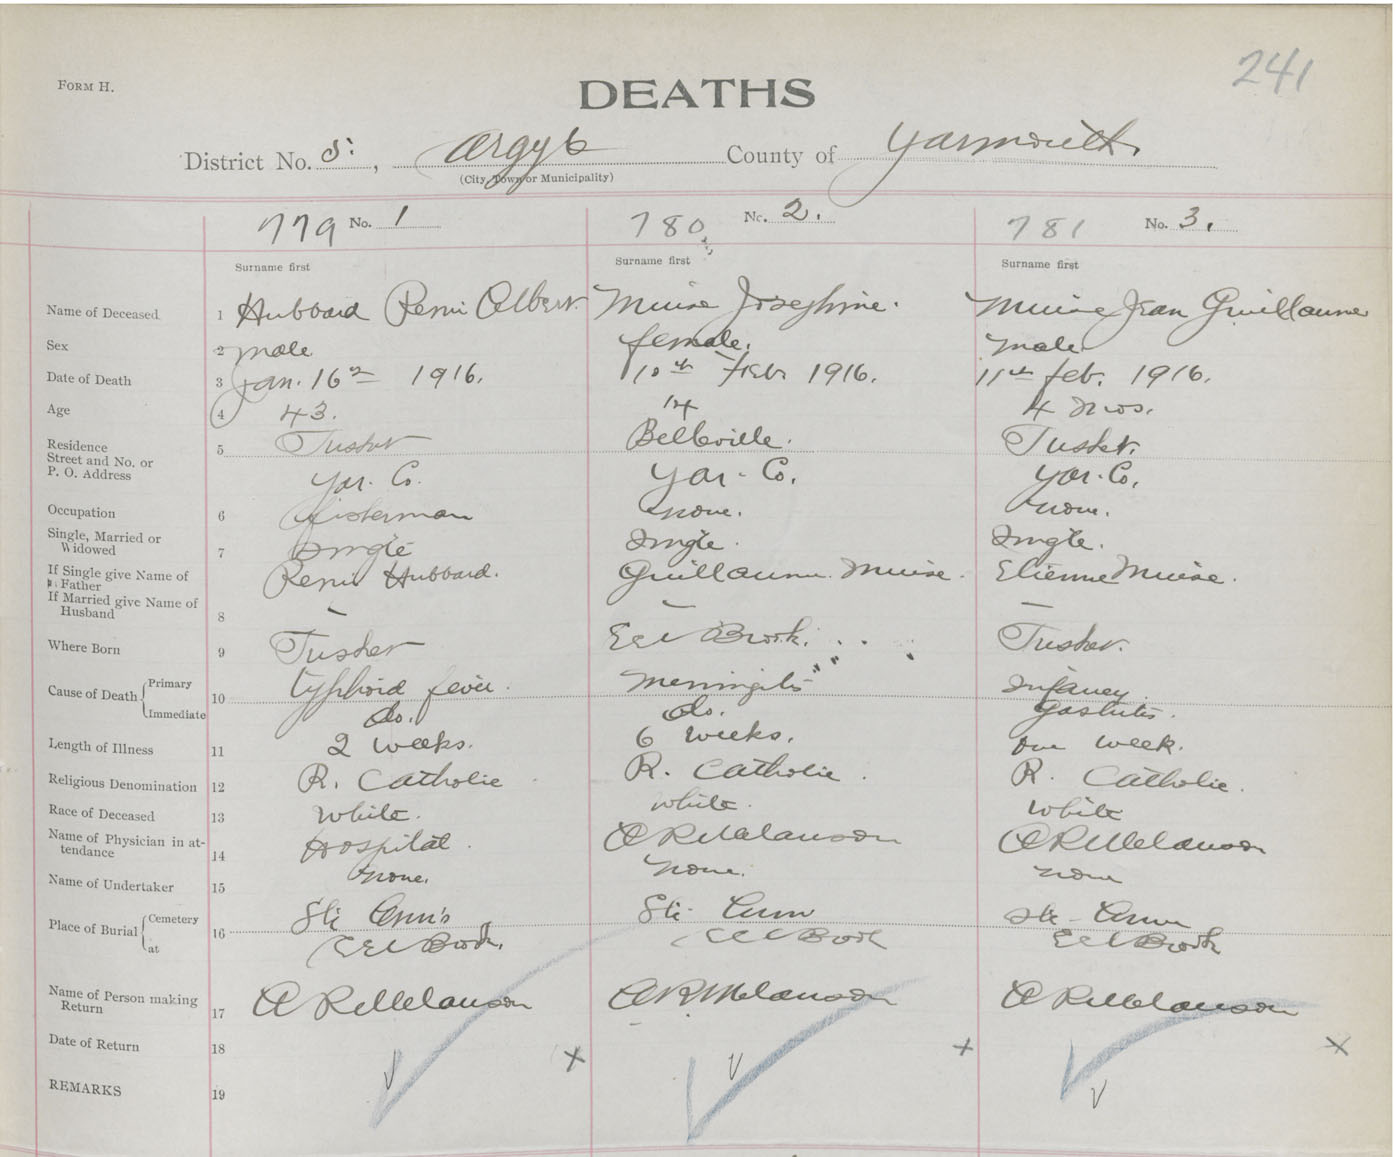 241
FORM H.
DEATHS
District No. 5., Argyle County of Yarmouth
(City, Town or Municipality)
779 No. 1 780 No. 2. 781 No. 3.
Surname first Surname first Surname first
Name of Deceased 1 Hubbard Remi Albert Muise Josephine. Muise Jean Guillaume
Sex 2 male female. male
Date of Death 3 Jan. 16th 1916. 10th Feb 1916. 11th feb. 1916.
Age 4 43. 14 4 mos.
Residence
Street and No. or
P. O. Address
5 Tusket Belleville. Tusket.
Yar. Co. Yar- Co. Yar. Co.
Occupation 6 fisherman none. none.
Single, Married or
Widowed
7 Single Single. Single.
If Single give Name of
Father
Remi Hubbard. Guillaume Muise. Etienne Muise.
If Married give Name of
Husband
8 – – –
Where Born 9 Tusket Eel Brook. Tusket.
Cause of Death { Primary
Immediate
10 typhoid fever. Meningitis Infancy
do. do. gastritis.
Length of Illness 11 2 weeks. 6 weeks. one week.
Religious Denomination 12 R. Catholic R. Catholic. R. Catholic.
Race of Deceased 13 White. white. White
Name of Physician in at-
tendance
14 Hospital. A R Melanson A R Melanson
Name of Undertaker 15 none. none. none
Place of Burial { Cemetery
at
16 Ste Ann's Ste- Ann Ste- Anne
Eel Brook. Eel Brook Eel Brook
Name of Person making
Return
17 A R Melanson A R Melanson A R Melanson
Date of Return 18 x x x
REMARKS 19